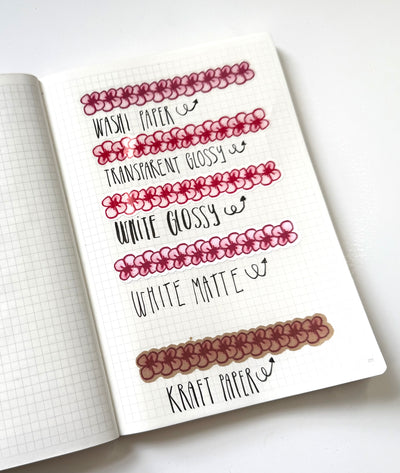 WASHI PAPER
TRANSPARENT GLOSSY
WHITE GLOSSY
WHITE MATTE
KRAFT PAPER